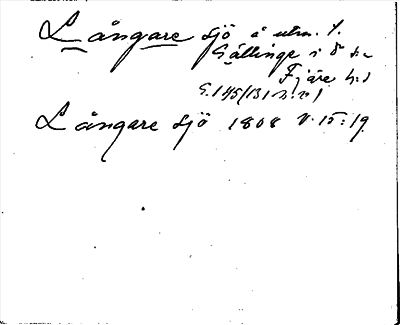 Långare sjö å utm. t.
Gällinge i 8 sn
Fjäre hd
G.145(131 n:r 1)
Långare sjö 1808 V.15:19.